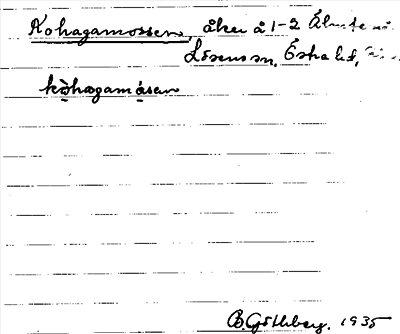 Kohagamossen, åker å 1-2 Älmte
Lösens sn, Östra hd,
kòhagamåsen
B. Götlberg. 1935